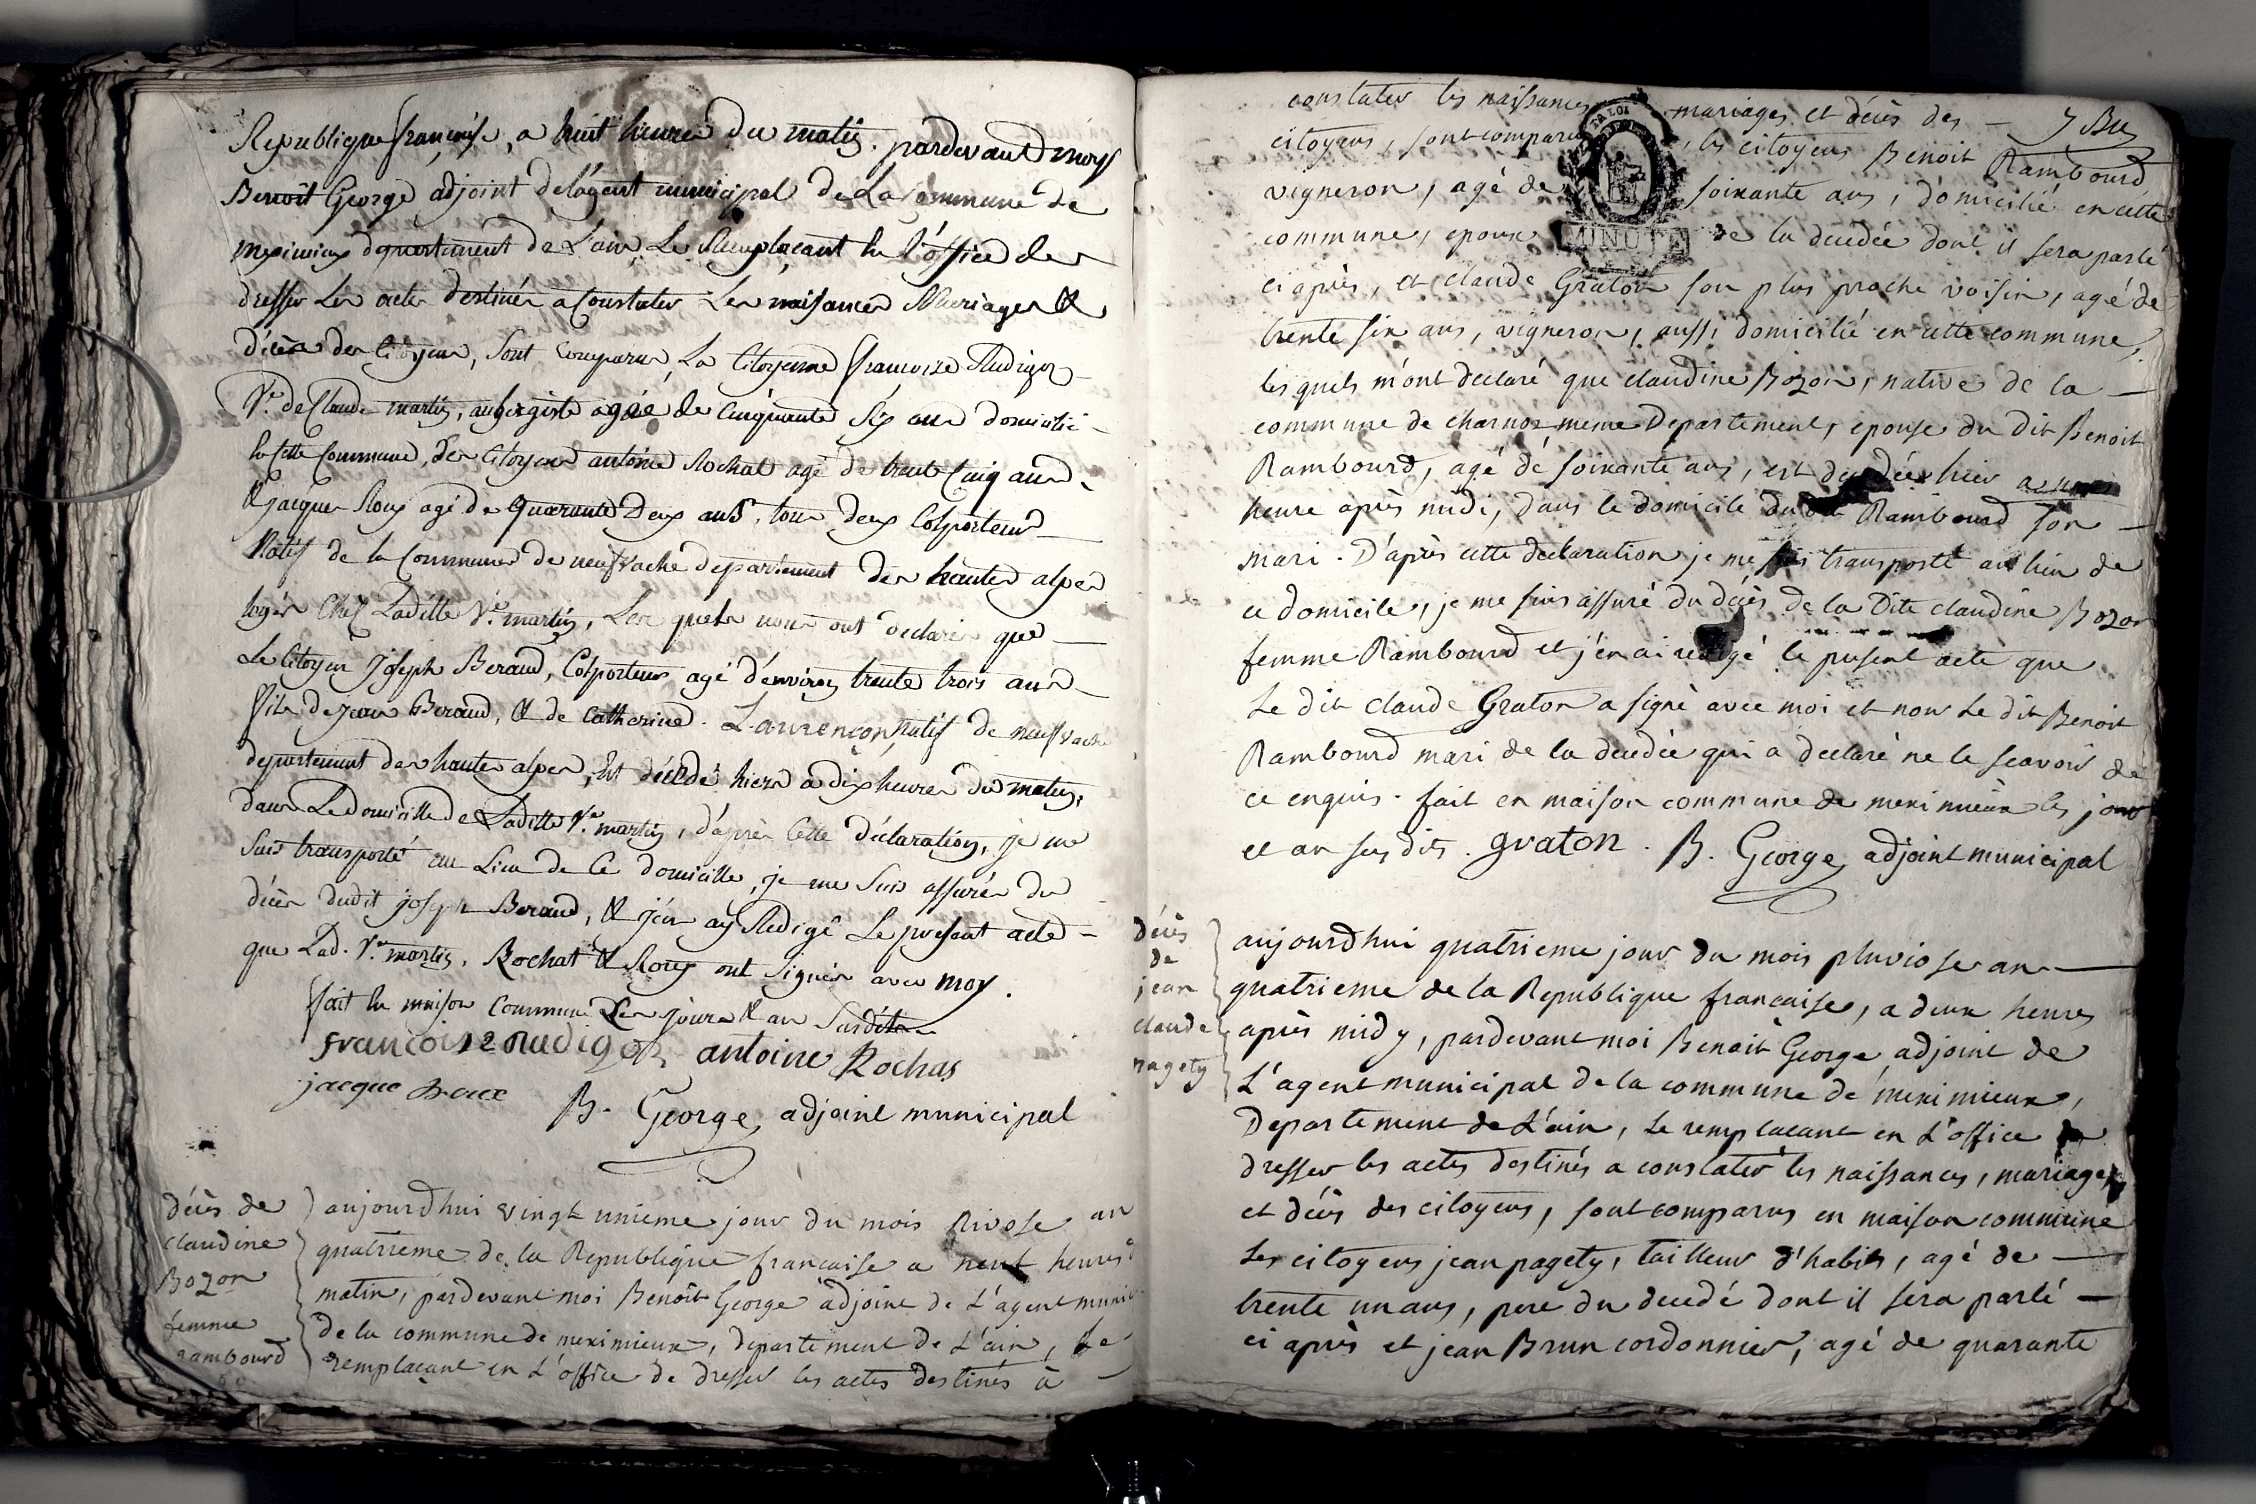 Republique françoise, a huit heures du matin. pardevant moy
Benoit George adjoint de l'agent municipal de La Commune de
meximieux departement de L'ain Le Remplaçant en l'office de
dresser Les actes destinés a Constater Les naissances Mariages &
décès des Citoyens, Sont Comparus La Citoyenne françoise Rudigoz
Ve. de Claude martin, aubergiste agée de Cinquante Six ans domicilié
en Cette Commune, des Citoyens antoine Rochat agé de trente Cinq ans
& jacques Roux agé de quarante Deux ans, tous deux Colporteurs
Natif de la Commune de neufvache departement des hautes alpes
logés Chez Laditte Ve. martin, Les quels nous ont declarés que
Le Citoyen Joseph Beraud, Colporteur agé d'environ trente trois ans
fils de jean Beraud, & de Catherine Laurençon natif de neufvache
departement des hautes alpes, Est décedé hiers a dix heures du matin,
dans Le domicille de Laditte Ve. martin, d'après Cette déclaration, je me
Suis transporté au Lieu de Ce domicille, je me Suis assurés du
décès dudit joseph Beraud, & j'en ay Redigé Le present acte
que Lad. Ve. martin, Rochat & Roux ont Signés avec moy.
fait en maison Commune Les jours & an Susdits
françoise Rudigoz antoine Rochas
jacque Roux B. George, adjoint municipal
décès de
claudine
Bozon
femme
rambourd
aujourdhui vingt unieme jour du mois Nivose an
quatrieme de la Republique francaise a neuf heures
matin, pardevant moi Benoit George adjoint de L'agent
de la commune de meximieux, departement de L'ain, Le
remplaçant en L'office de dresser les actes destinés à
constater les naissances mariages et décès des
citoyens, sont comparus, les citoyens Benoit Rambourd
vigneron, agé de soixante ans, domicilié en cette
commune, epoux de la decedée dont il sera parlé
ci après, et claude Graton son plus proche voisin, agé de
trente six ans, vigneron, aussi domicilié en cette commune,
lesquels m'ont declaré que claudine Bozon, native de la
commune de charnoz meme Departement, epouse du dit Benoit
Rambourd, agé de soixante ans, est decedée hier
heure après midi, dans le domicile du Rambourd son
mari. D'après cette declaration je me suis transporté au lieu de
ce domicile, je me suis assuré du décès de la Dite claudine Bozon
femme Rambourd et j'en ai redigé le present acte que
Le dit claude Graton a signé avec moi et non Le dit Benoit
Rambourd mari de la decedée qui a declaré ne le scavoir de
ce enquis. fait en maison commune de meximieux les jour
et an susdits. graton. B. George, adjoint municipal
décès
de
jean
claude
pagety
aujourdhui quatrieme jour du mois pluviose an
quatrieme de la Republique francaise, a deux heures
après midy, pardevant moi Benoit George adjoint de
L'agent municipal de la commune de meximieux,
Departement de L'ain, Le remplacant en L'office de
dresser les actes destinés a constater les naissances, mariages
et décès des citoyens, sont comparus en maison commune
Les citoyens jean pagety, tailleur d'habits, agé de
trente un ans, pere du decedé dont il sera parlé
ci après et jean Brun cordonnier, agé de quarante
MINUTE